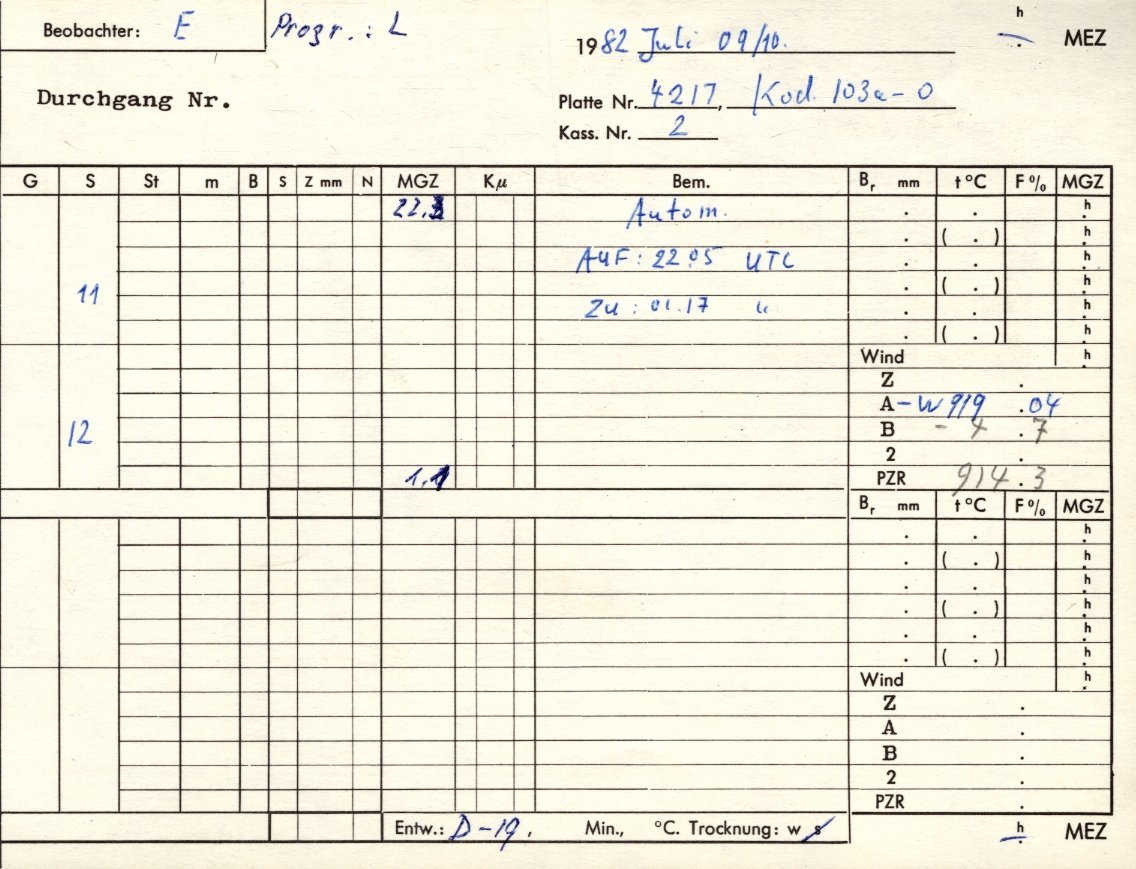 Beobachter: E Progr.: L
1982 Juli 09/10. h MEZ
Durchgang Nr.
Platte Nr. 4217, Kod. 103a-O
Kass. Nr. 2
G S St m B S Z mm N MGZ Kμ Bem. Br mm t °C F % MGZ
Autom. h
( . ) h
AUF: 22.05 UTC h
11 ( . ) h
Zu: 01.17 " h
( . ) h
Wind h
Z .
A -W 919 .04
12 B - 4 .7
2 .
1.1 PZR 914.3
Br mm t °C F % MGZ
h
( . ) h
h
( . ) h
h
( . ) h
Wind h
Z .
A .
B .
2 .
PZR .
Entw.: D-19, Min., °C. Trocknung: w s h MEZ